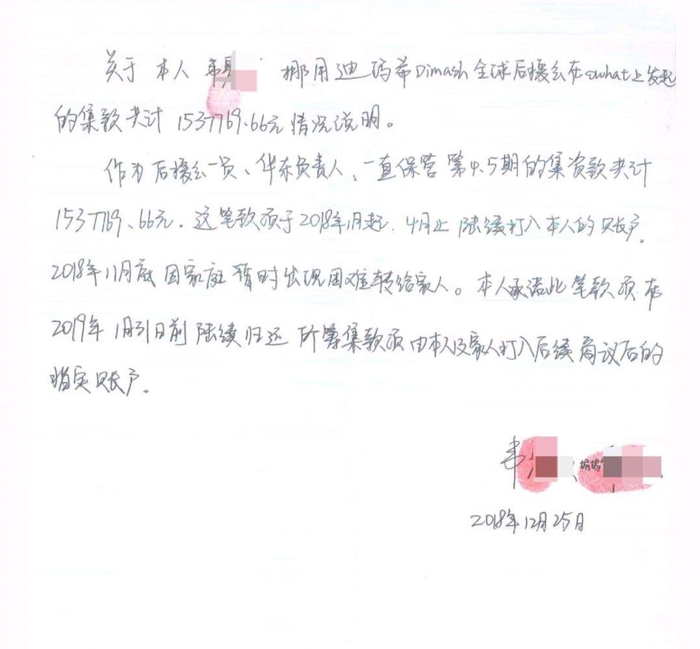 关于 本人 韦 挪用迪玛希Dimash全球后援会在owhat上发起
的集款共计 1537769.66元情况说明。
作为后援会一员、华东负责人、一直保管第4.5期的集资款共计
1537769.66元. 这笔款项于2018年1月起. 4月止 陆续打入本人的账户.
2018年11月底 因家庭 暂时出现困难转给家人。本人承诺此笔款项 在
2019年1月31日前 陆续归还 所筹集款项 由本人及家人打入后续商议后的
指定账户.
韦
2018年12月25日